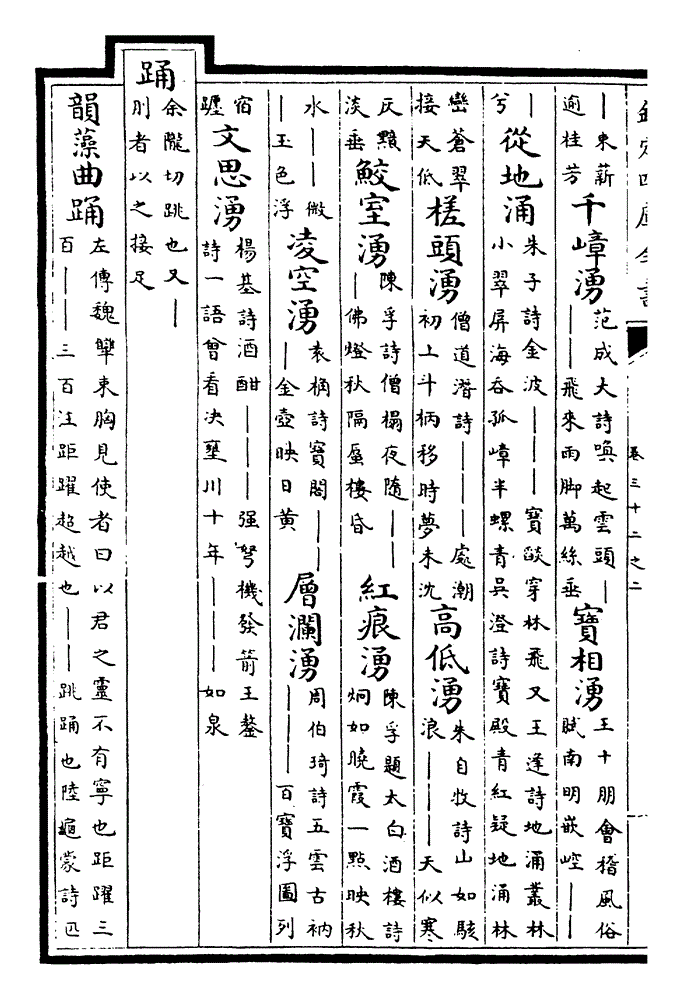 欽定四庫全書
卷三十二之二
｜東薪
逾桂芳
千嶂湧
范成大詩喚起雲頭｜
｜｜飛來雨脚萬絲垂
寶相湧
王十朋會稽風俗
賦南明嵌崆｜｜
｜
兮
從地涌
朱子詩金波｜｜｜寶燄穿林飛又王逢詩地涌叢林
小翠屏海吞孤嶂半螺青吳澄詩寶殿青紅疑地涌林
巒蒼翠
接天低
槎頭湧
僧道潛詩｜｜｜處潮
初上斗柄移時夢未沈
高低湧
朱自牧詩山如駭
浪｜｜｜天似寒
灰黯
淡垂
鮫室湧
陳孚詩僧榻夜隨｜｜
｜佛燈秋隔蜃樓昏
紅痕湧
陳孚題太白酒樓詩
炯如曉霞一點映秋
水｜｜｜微
｜玉色浮
凌空湧
袁桷詩寶閣｜｜
｜金壺映日黃
層瀾湧
周伯琦詩五雲古衲
｜｜｜百寶浮圖列
宿
躔
文思湧
楊基詩酒酣｜｜｜强弩機發箭王鏊
詩一語曾看決壅川十年｜｜｜如泉
踊
余隴切跳也又｜
刖者以之接足
韻藻曲踊
左傳魏犨束胸見使者曰以君之靈不有寧也距躍三
百｜｜三百注距躍超越也｜｜跳踊也陸龜蒙詩匹